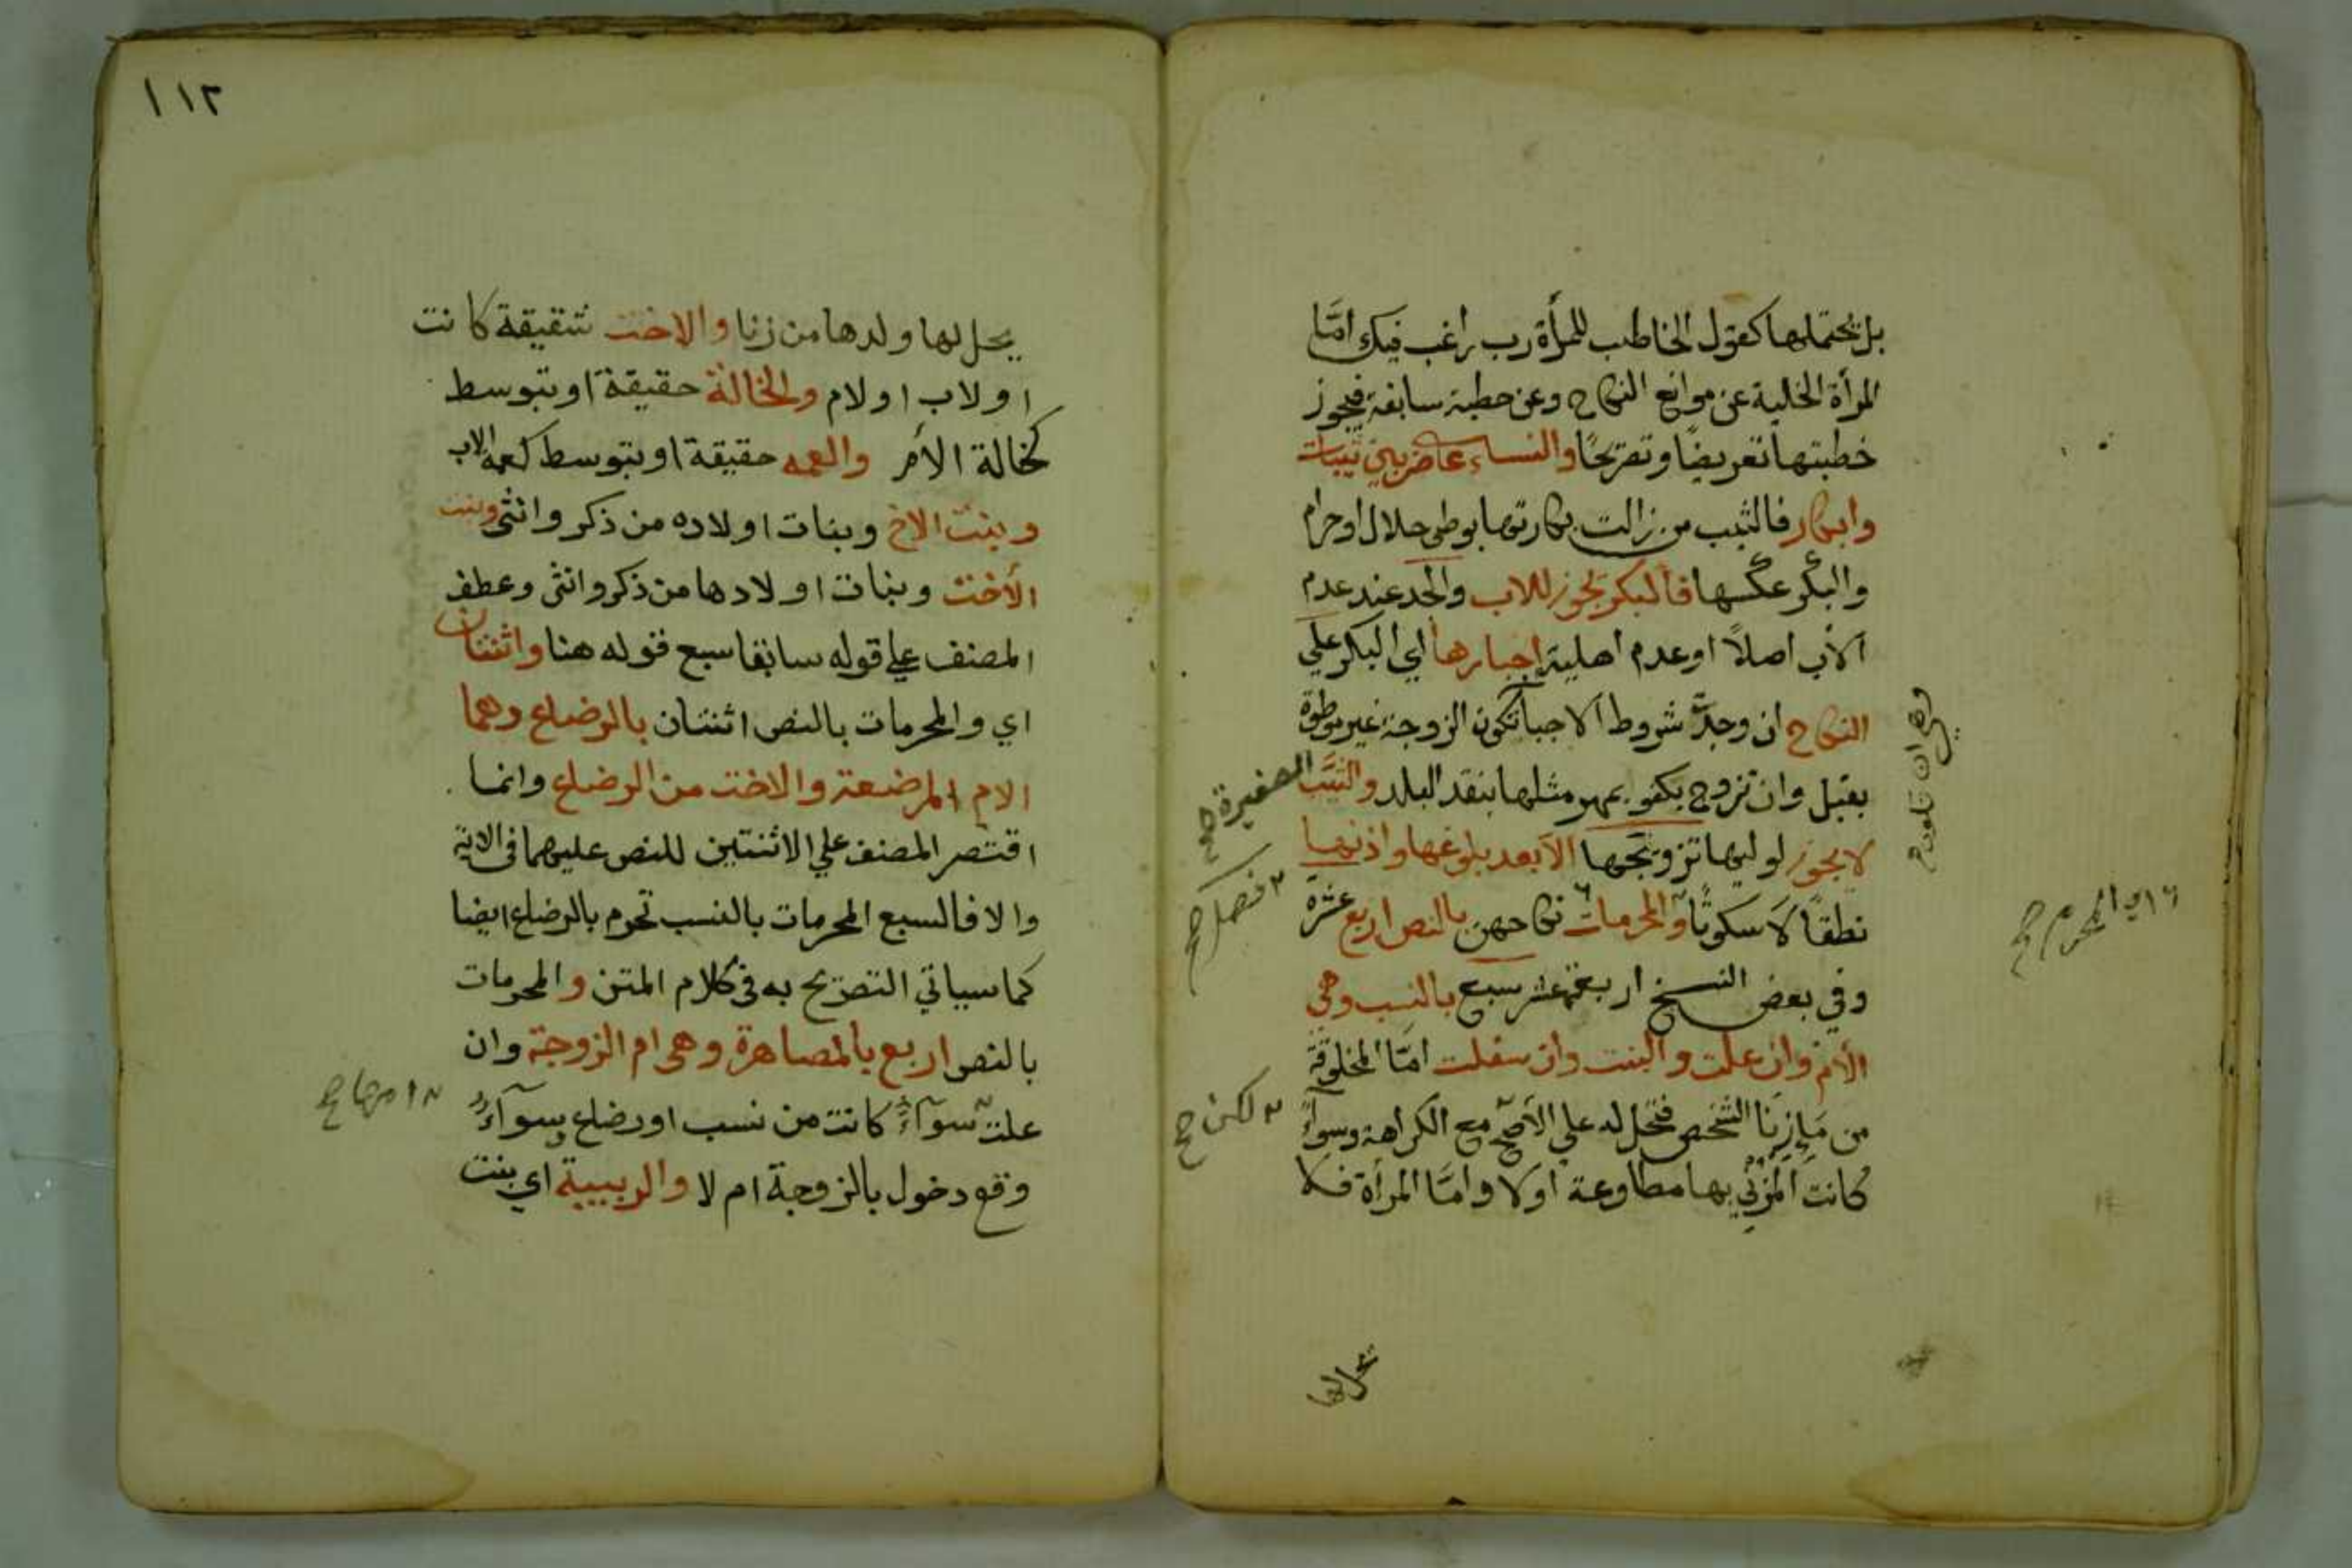 بل يحتملها كقول الخاطب للمرأة رب راغب فيك امّا
المرأة الخلية عن موانع النكاح وعن خطبة سابقة فيجوز
خطبتها تعريضًا وتصريحًا والنساء على ضربين ثيبات
وابكار فالثيب من زالت بكارتها بوطئ حلال او حرام
والبكر عكسها فالبكر يجوز للاب والجد عند عدم
الاب اصلاً او عدم اهليته اجبارها اي البكر علي
النكاح ان وجدت شروط الاجبار تكون الزوجة غير موطوة
بقبل وان تزوج بكفو بمهر مثلها بنقد البلد والثيب
لا يجوز لوليها تزويجها الا بعد بلوغها واذنها
نطقًا لا سكوتًا والمحرمات نكاحهن بالنص اربع عشرة
وفي بعض النسخ اربعة عشر سبع بالنسب وهي
الام وان علت والبنت وان سفلت امّا المخلوقة
من ماء زنا الشخص فتحل له علي الأصح مع الكراهة وسواء
كانت المزني بها مطاوعة اولا وامّا المرأة فلا
الصغيرة صح
٢ فصل صح
٢ لكن صح
يحل لها
١١٢
يحل لها ولدها من زنا والاخت شقيقة كانت
او لاب او لام والخالة حقيقة او بتوسط
كخالة الأم والعمه حقيقة او بتوسط كعمة الاب
وبنت الاخ وبنات اولاده من ذكر وانثى وبنت
الأخت وبنات اولادها من ذكر وانثى وعطف
المصنف علي قوله سابقا سبع قوله هنا واثنتان
اي والمحرمات بالنص اثنتان بالرضاع وهما
الام المرضعة والاخت من الرضاع وانما
اقتصر المصنف علي الاثنتين للنص عليهما في الاية
والا فالسبع المحرمات بالنسب تحرم بالرضاع ايضا
كما سياتي التصريح به في كلام المتن والمحرمات
بالنص اربع بالمصاهرة وهي ام الزوجة وان
علت سوآء كانت من نسب او رضاع سوآء
وقع دخول بالزوجة ام لا والربيبة اي بنت